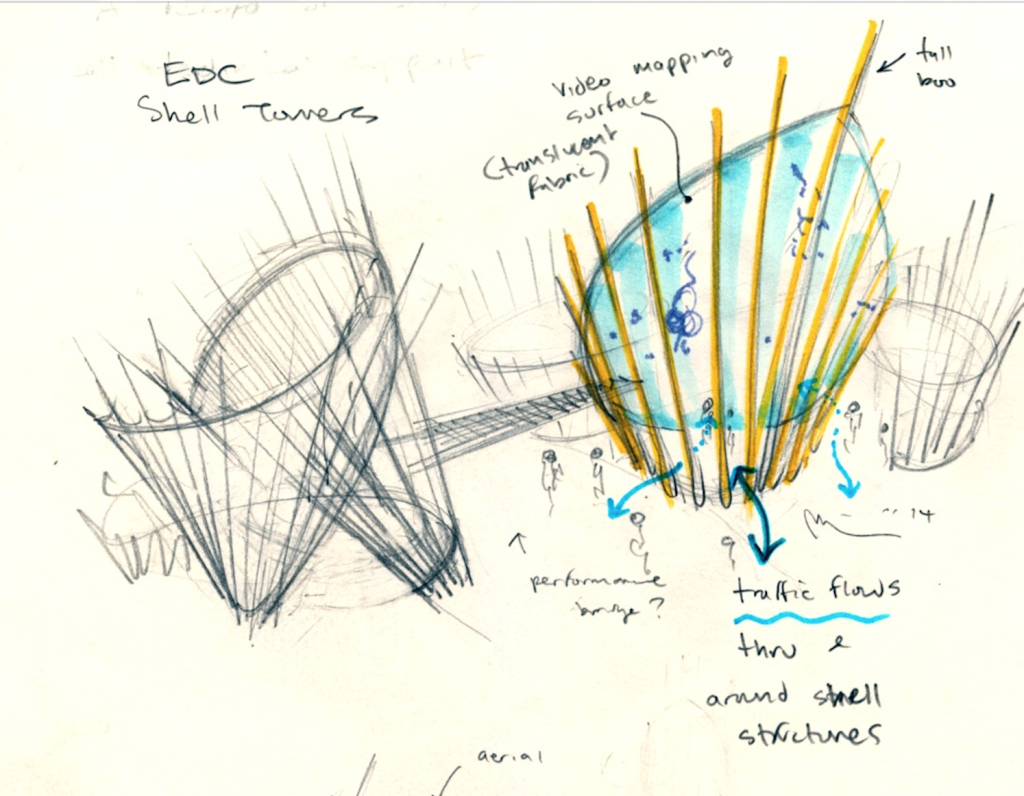 EDC
Shell Towers
video mapping
surface
(translucent
fabric)
full
boo
'14
performance
bridge?
traffic flows
thru &
around shell
structures
aerial